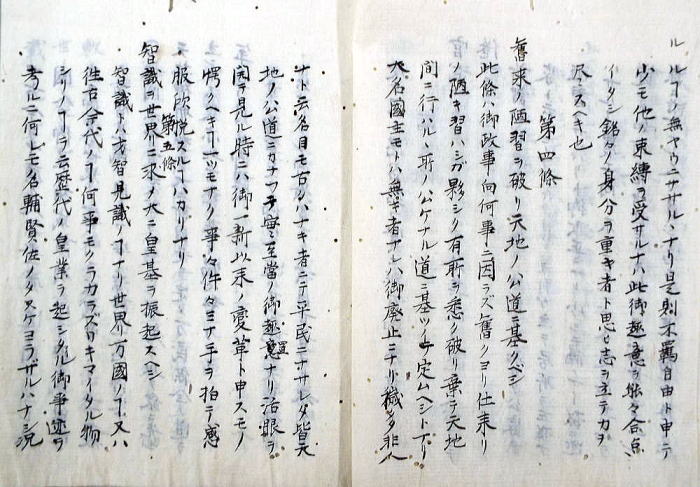 ルヿノ無ヤウニナサル丶ナリ是則不羈自由ト申テ
少モ他ノ束縛ヲ受サルナレハ此御趣意ヲ能々合点
イタシ銘々ノ身分ヲ重キ者ト思ヒ志ヲ立テカヲ
尽スヘキ也
第四條
舊来ノ陋習ヲ破リ天地ノ公道ニ基クベシ
此條ハ御政事向何事ニ因ラズ舊クヨリ仕来リ
ノ陋キ習ハシガ夥シク有所ヲ悉ク破リ棄テ天地
間ニ行ハル丶所ノ公ケナル道ニ基ツキ定ムヘシト
大名國主モトハ無キ者ナレハ御廃止ニナリ穢多非人
ナト云名目モ古シハナキ者ニテ平民ニナサレタ皆天
地ノ公道ニカナツテ寔ニ至當ノ御趣意ナリ活眼ヲ
因ヲ見ル時ニハ御一新以来ノ変革ト申スモノ
愕クヘキヿ一ツモナク事々件々ミナ手ヲ拍テ感
服欣悦スルヿハカリナリ
第五條
智識ヲ世界ニ求メ大ニ皇基ヲ振起スヘシ
智識トハ才智見識ノヿナリ世界万國ノヿ又ハ
往古今代ノヿ何事モクラカラズワキマイタル物
シリノヿヲ云歴代ノ皇業ヲ起シタル御事迹ヲ
考ルニ何レモ名輔賢佐ノタスケヨラザルハナシ況